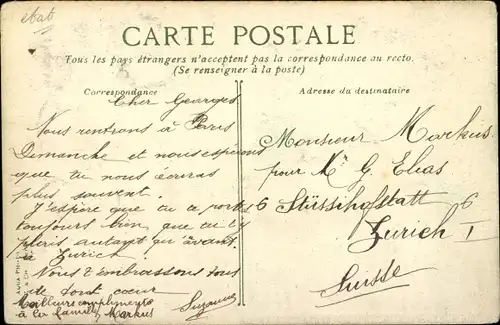 état
CARTE POSTALE
Tous les pays étrangers n'acceptent pas la correspondance au recto.
(Se renseigner à la poste)
Correspondance
Adresse du destinataire
Cher Georges
Nous rentrons à Paris
Dimanche et nous espérons
que tu nous écriras
plus souvent.
J'espère que tu te portes
toujours bien, que tu t'y
plairis autant qu'avant
à Zurich
Nous t'embrassons tous
de tout cœur
Suzanne
Meilleurs compliments
à la famille Markus
Monsieur Markus
pour Mr G. Elias
6 Stüssihofstatt 6
Zurich I
Suisse